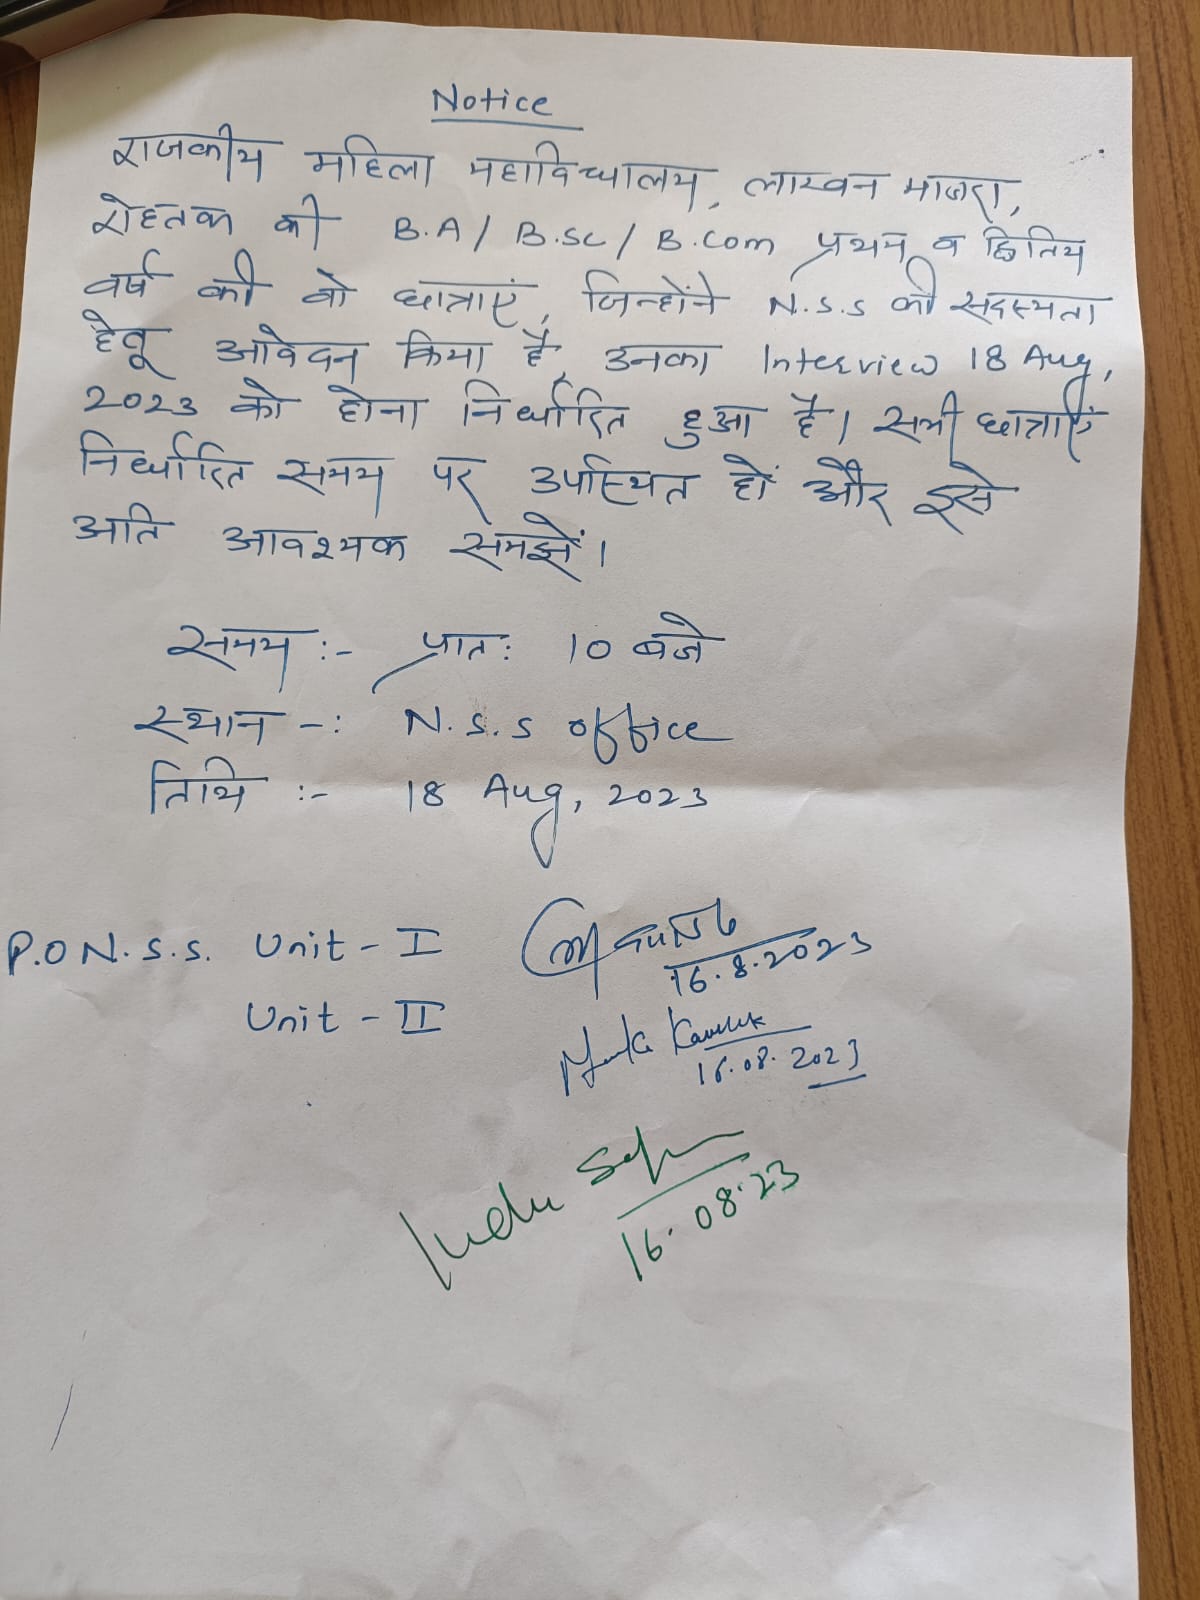 Notice
राजकीय महिला महाविध्यालय, लाखन माजरा,
रोहतक की B.A / B.Sc / B.Com प्रथम व द्वितिय
वर्ष की वो छात्राएं, जिन्होंने N.S.S की सदस्यता
हेतू आवेदन किया है, उनका Interview 18 Aug,
2023 को होना निर्धारित हुआ है। सभी छात्राएं
निर्धारित समय पर उपस्थित हों और इसे
अति आवश्यक समझें।
समय :- प्रात: 10 बजे
स्थान -: N.S.S office
तिथि :- 18 Aug, 2023
P.O N.S.S. Unit - I
16.8.2023
Unit - II
16.08.2023
Indu
16.08.23